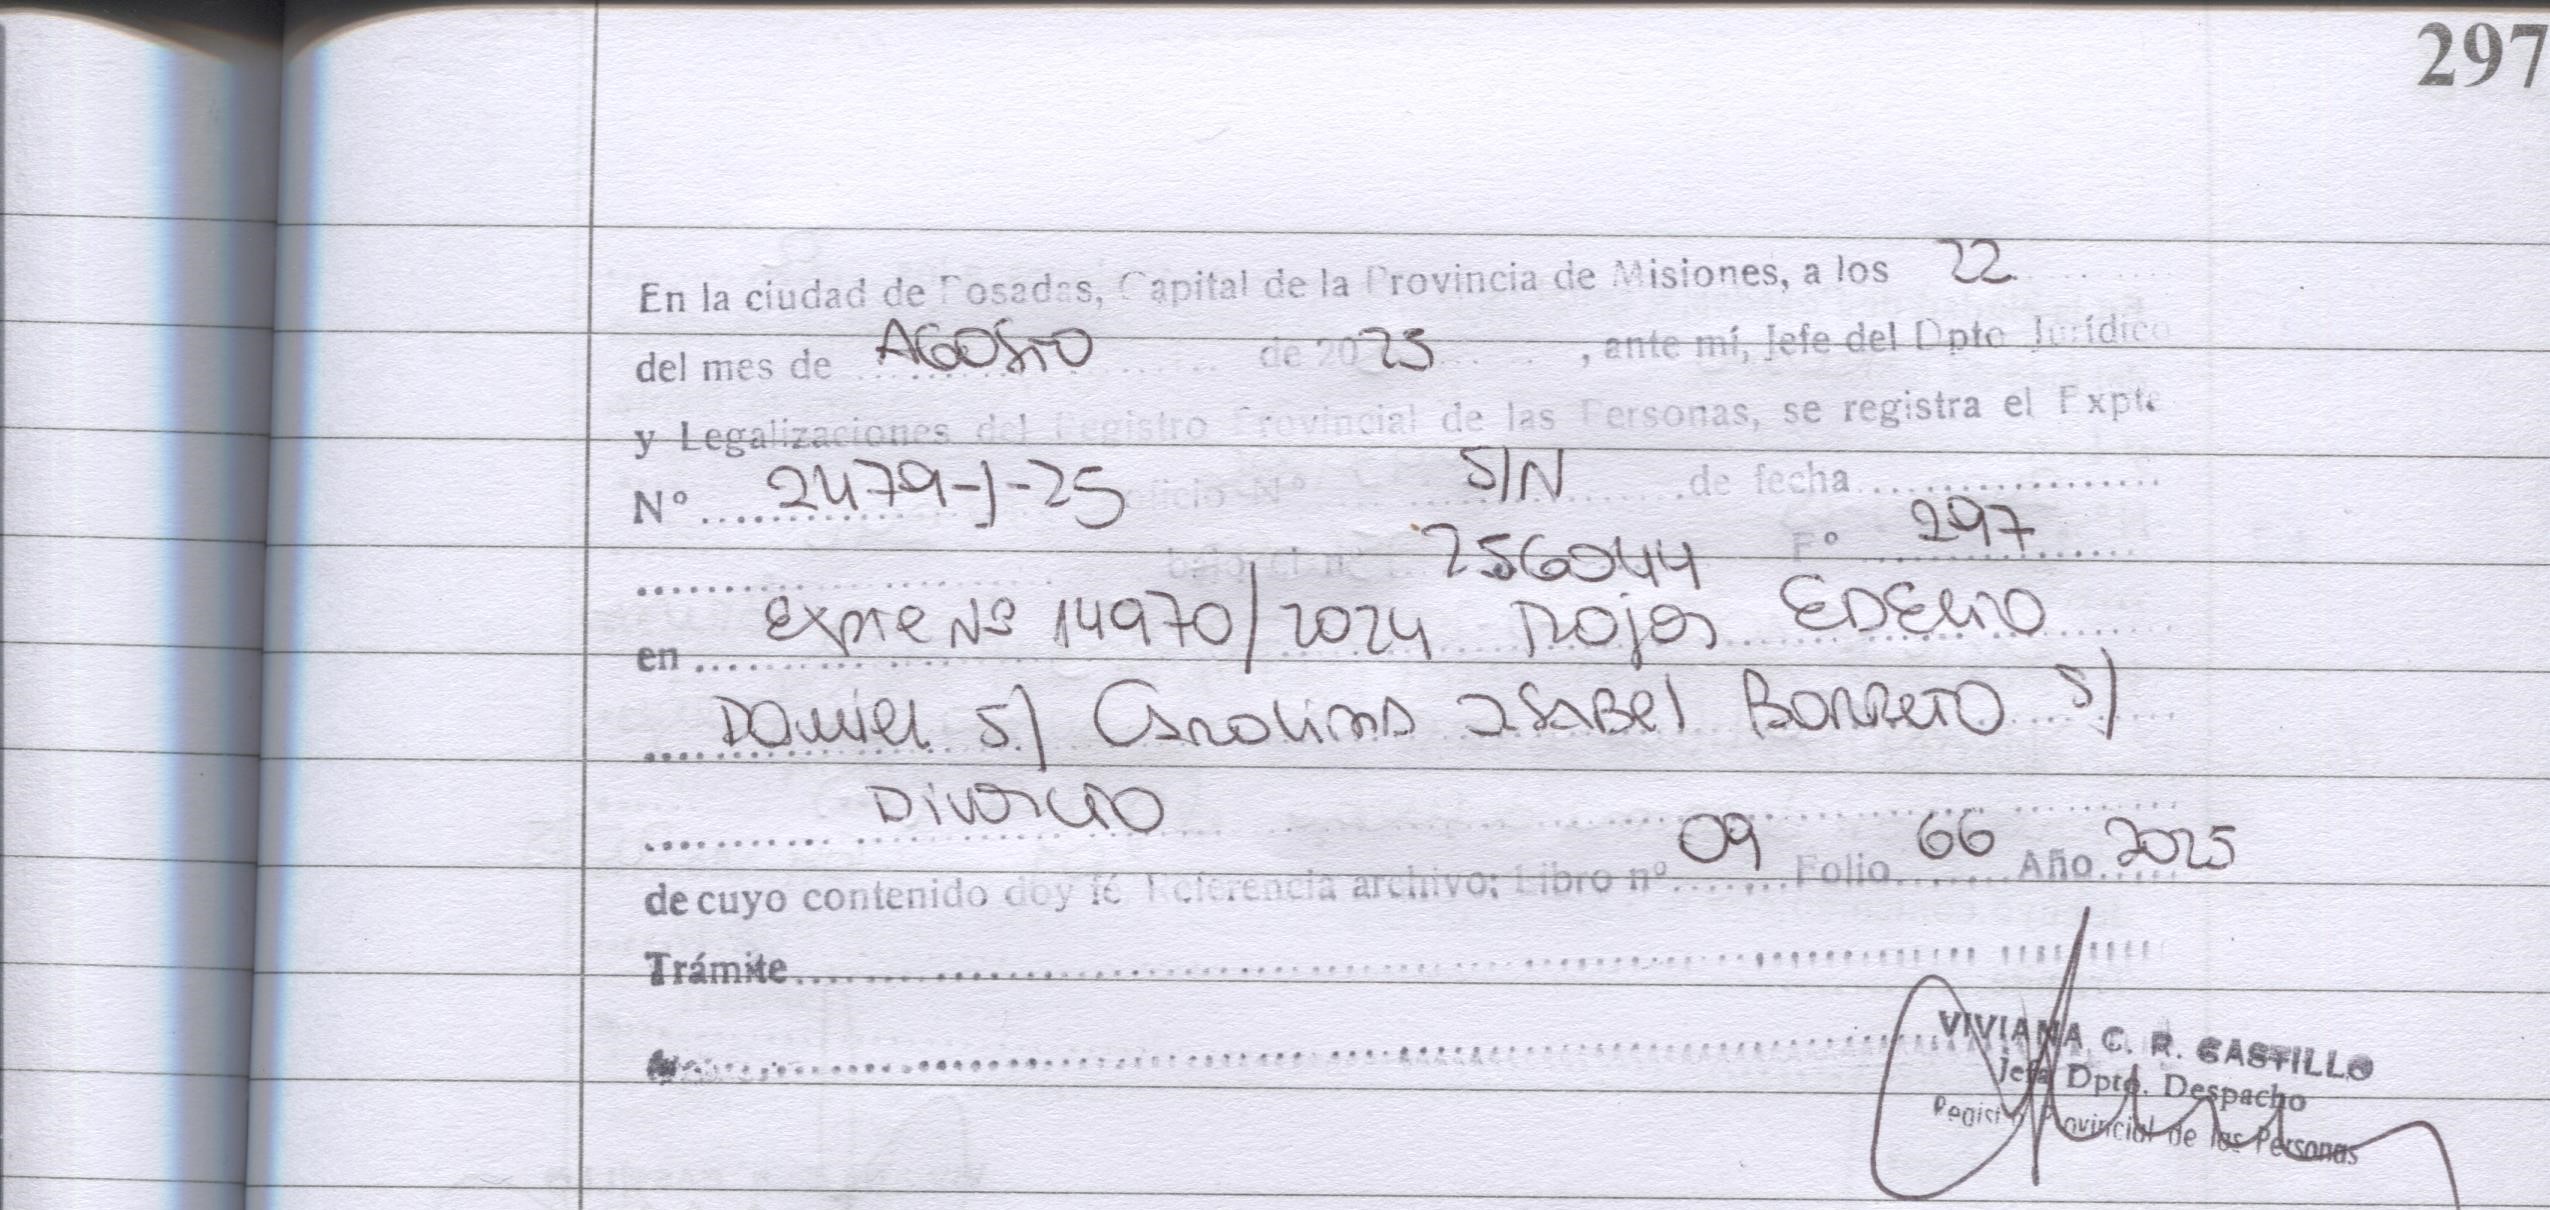 297
En la ciudad de Posadas, Capital de la Provincia de Misiones, a los 22
del mes de AGOSTO de 2025, ante mí, Jefe del Dpto Jurídico
y Legalizaciones del Registro Provincial de las Personas, se registra el Expte
Nº 2479-J-25 Oficio Nº S/N de fecha
bajo el nº 256044 Fº 297
en Expte Nº 14970/2024 Rojas EDELIO
Daniel S/ Carolina Isabel Borreto S/
Divorcio
de cuyo contenido doy fé Referencia archivo: Libro nº 09 Folio 66 Año 2025
Trámite
VIVIANA C. R. CASTILLO
Jefa Dpto. Despacho
Registro Provincial de las Personas